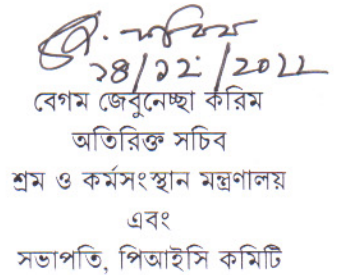 ১৪/১২/২০২২
বেগম জেবুনেচ্ছা করিম
অতিরিক্ত সচিব
শ্রম ও কর্মসংস্থান মন্ত্রণালয়
এবং
সভাপতি, পিআইসি কমিটি